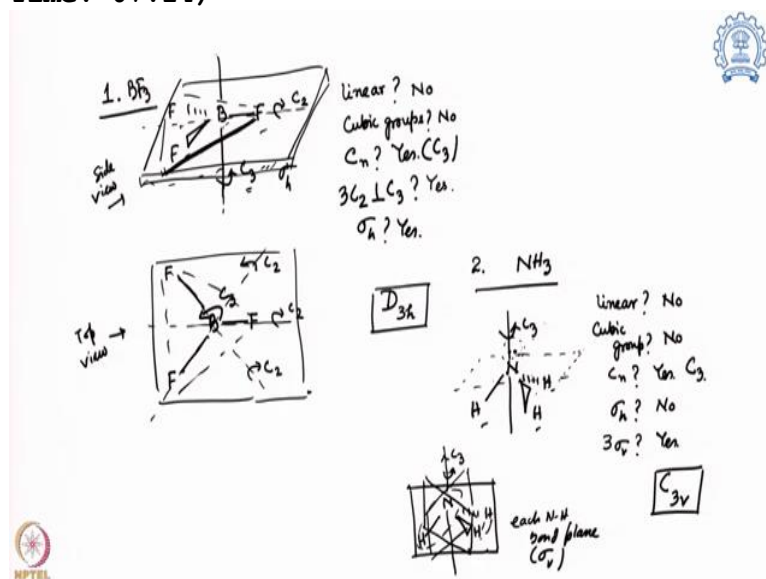 1. BF3
F B F C2
F
C3 σh
Side view →
linear? No
Cubic groups? No
Cn? Yes. (C3)
3C2 ⊥ C3? Yes.
σh? Yes.
D3h
Top view →
F C2
C3
B F C2
F C2
2. NH3
C3
N
H H H
linear? No
Cubic group? No
Cn? Yes. C3.
σh? No
3σv? Yes
C3v
C3
N
H H H
each N-H bond plane (σv)
NPTEL